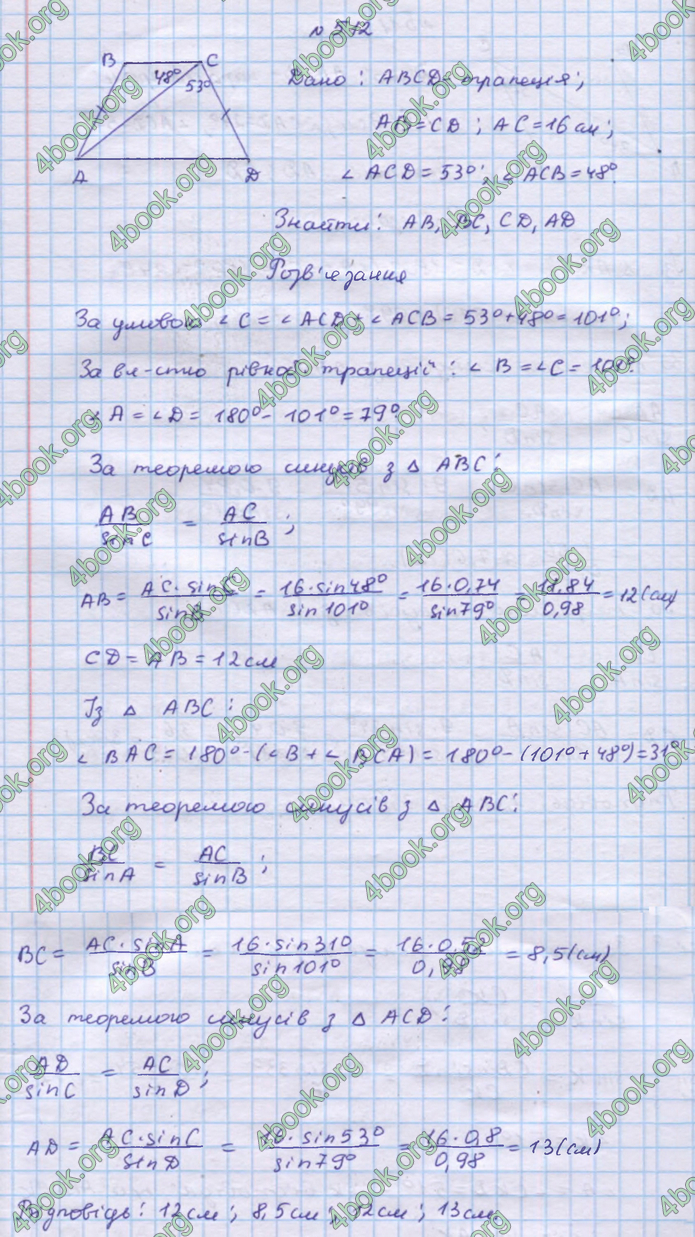 № 572
B C
48°
53°
A D
Дано: ABCD- трапеція;
AB=CD; AC=16 см;
∠ ACD = 53°; ∠ ACB = 48°.
Знайти: AB, BC, CD, AD
Розв'язання
За умовою ∠ C = ∠ ACD + ∠ ACB = 53°+48°=101°;
За вл-стю рівноб трапецій: ∠ B = ∠C = 101°.
∠ A = ∠D = 180° - 101° = 79°.
За теоремою синусів з △ ABC:
AB/sinC = AC/sinB;
AB = AC·sinC/sinB = 16·sin48°/sin101° = 16·0,74/sin79° = 11,84/0,98 = 12(см)
CD = AB = 12 см
Із △ ABC:
∠ BAC = 180° - (∠B + ∠ BCA) = 180° - (101° + 48°) = 31°
За теоремою синусів з △ ABC:
BC/sinA = AC/sinB;
BC = AC·sinA/sinB = 16·sin31°/sin101° = 16·0,52/0,98 = 8,5(см)
За теоремою синусів з △ ACD:
AD/sinC = AC/sinD;
AD = AC·sinC/sinD = 16·sin53°/sin79° = 16·0,8/0,98 = 13(см)
Відповідь: 12см; 8,5см; 12см; 13см.
4book.org